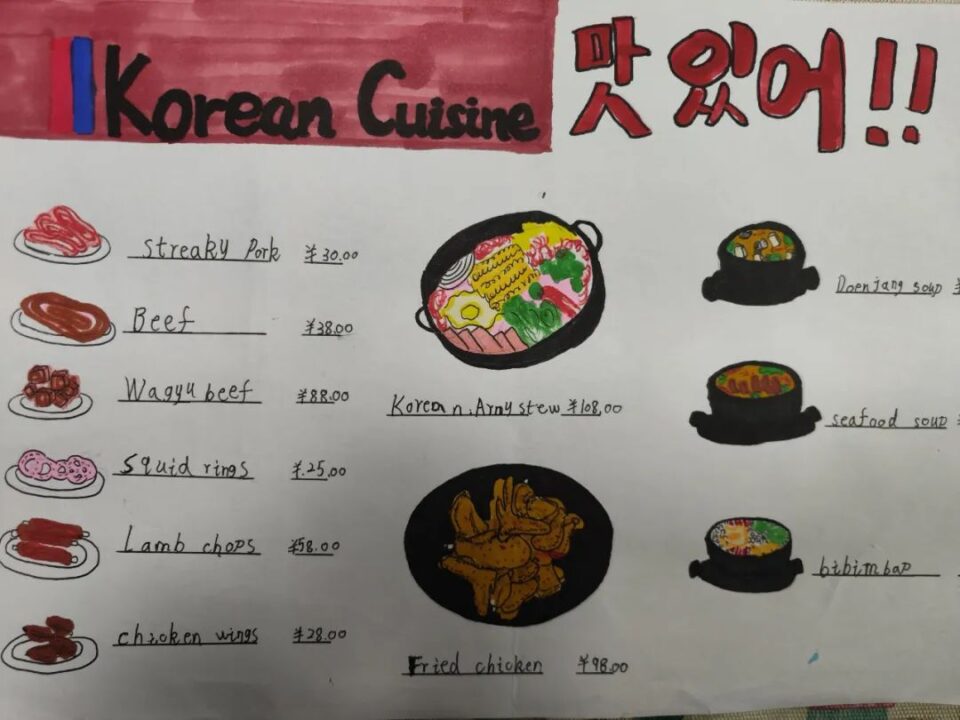 Korean Cuisine
맛있어!!
Streaky Pork ¥30.00
Beef ¥38.00
Wagyu beef ¥88.00
Squid rings ¥.25.00
Lamb chops ¥58.00
chicken wings ¥28.00
Korean Army stew ¥108.00
Fried chicken ¥98.00
Doenjang soup ¥
seafood soup ¥
bibimbap